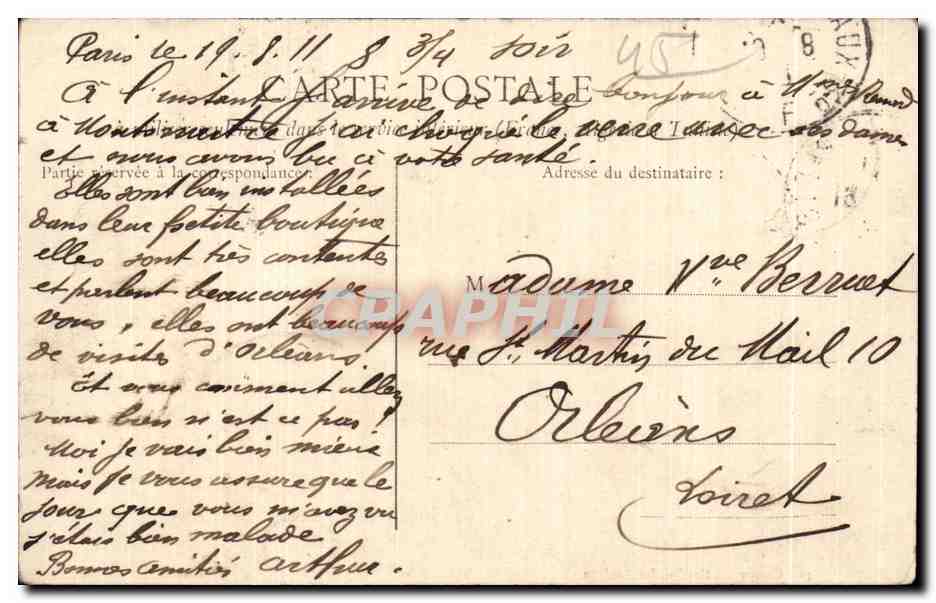 Paris le 19.8.11 8 3/4 soir
45
CARTE POSTALE
à l'instant j'arrive de dire bonjour à Mme
à Montmartre j'ai choqué le verre avec ces dames
et nous avons bu à votre santé.
Partie réservée à la correspondance:
Adresse du destinataire :
Elles sont bien installées
dans leur petite boutique
elles sont très contentes
et parlent beaucoup de
vous, elles ont beaucoup
de visites d'Orléans
Et vous comment allez
vous bien n'est ce pas?
Moi je vais bien mieux
mais je vous assure que le
jour que vous m'avez vu
j'étais bien malade
Bonnes amitiés Arthur.
Madame Vve Berruet
rue St Martin du Mail 10
Orléans
Loiret
CPAPHIL